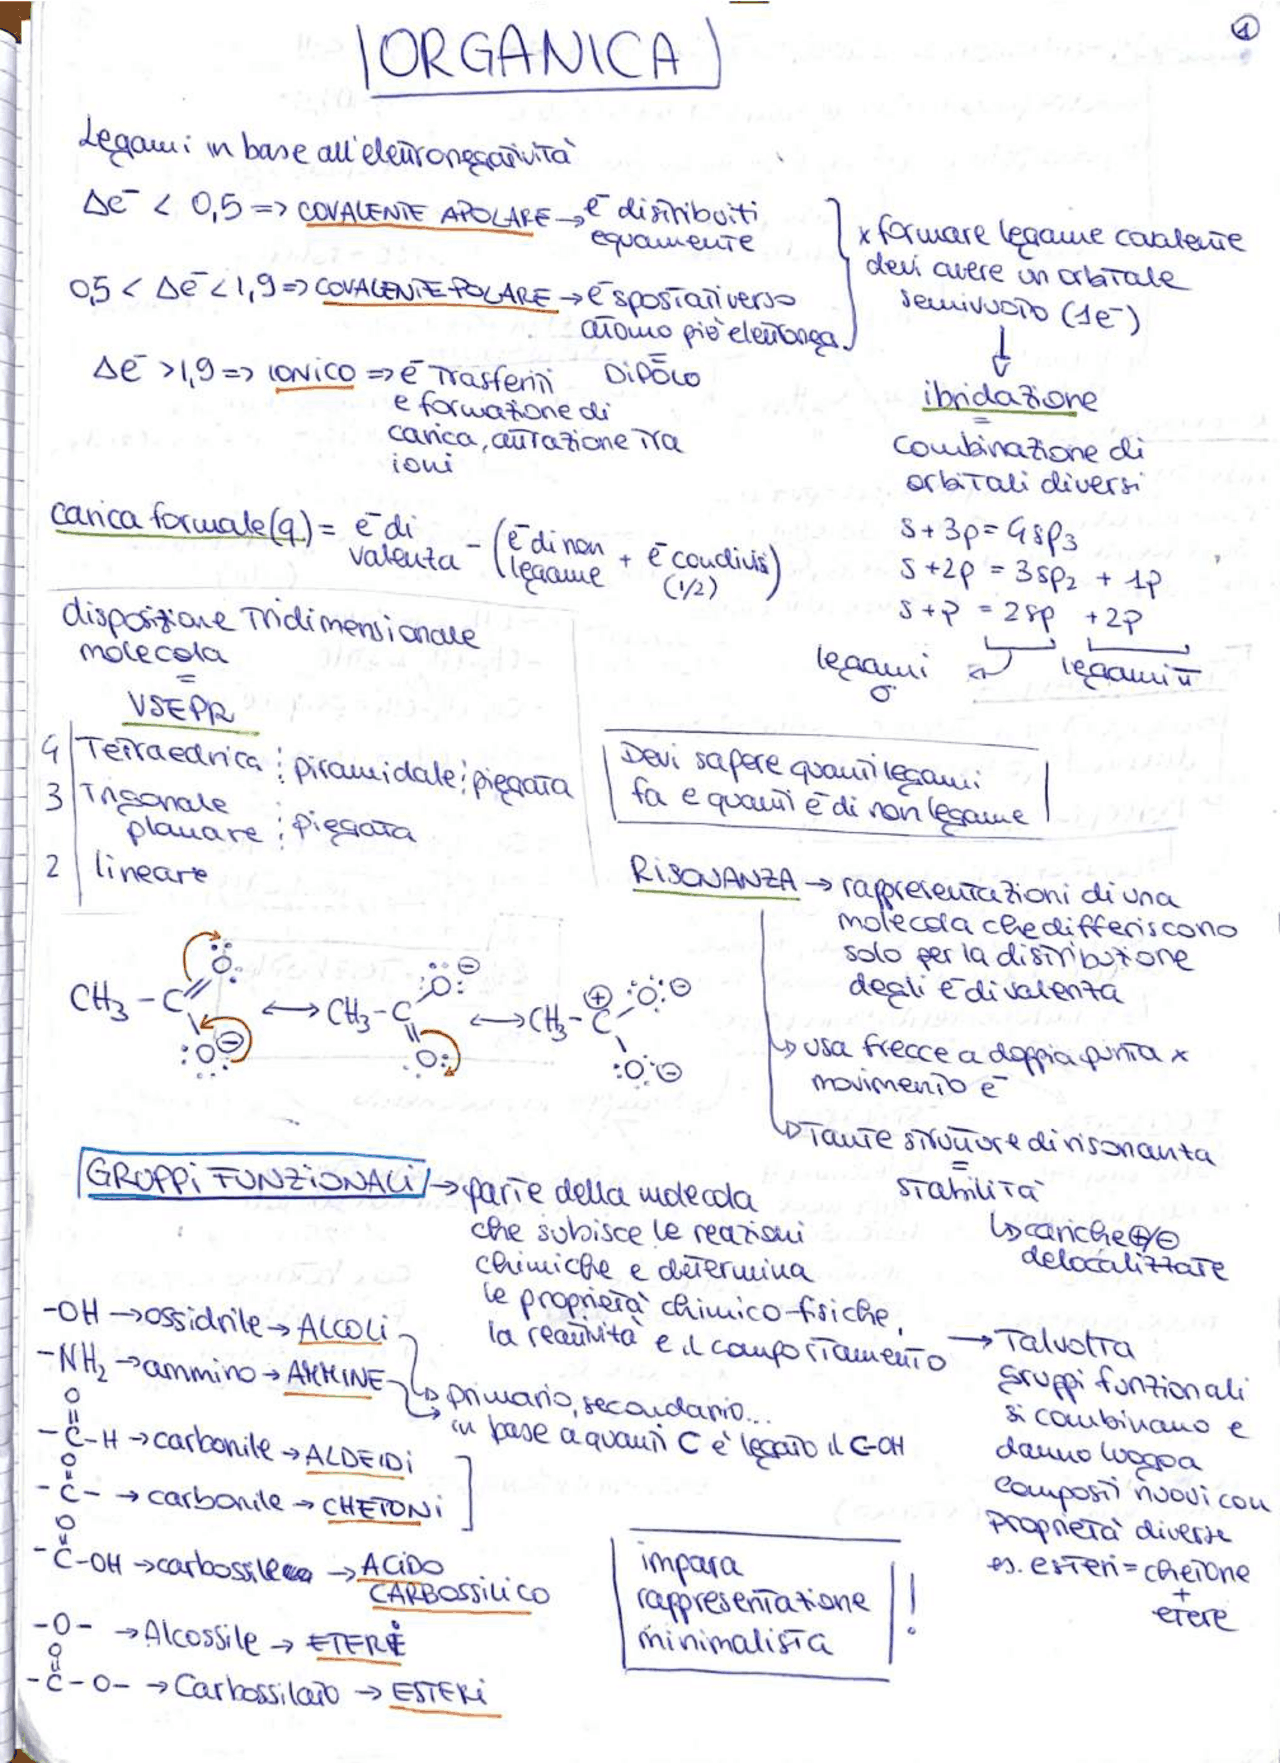 ORGANICA
1
Legami in base all'elettronegatività
Δe⁻ < 0,5 => COVALENTE APOLARE → e⁻ distribuiti
equamente
0,5 < Δe⁻ < 1,9 => COVALENTE POLARE → e⁻ spostati verso
atomo più elettronga.
DIPOLO
Δe⁻ > 1,9 => IONICO => e⁻ trasferiti
e formazione di
carica, attrazione tra
ioni
x formare legame covalente
devi avere un orbitale
semivuoto (1e⁻)
↓
ibridazione
=
combinazione di
orbitali diversi
s+3p = 4sp3
s+2p = 3sp2 + 1p
s+p = 2sp + 2p
legami σ legami π
carica formale (q) = e⁻ di valenza - (e⁻ di non legame + e⁻ condivisi (1/2))
disposizione tridimensionale
molecola
=
VSEPR
4 Tetraedrica ; piramidale ; piegata
3 Trigonale
planare ; piegata
2 lineare
Devi sapere quanti legami
fa e quanti e⁻ di non legame
RISONANZA → rappresentazioni di una
molecola che differiscono
solo per la distribuzione
degli e⁻ di valenza
↳ usa frecce a doppia punta x
movimento e⁻
↳ Tante strutture di risonanza
=
stabilità
↳ cariche ⊕/⊖
delocalizzate
CH3 - C O O ⊖ ⟷ CH3 - C O ⊖ O ⟷ CH3 - C ⊕ O ⊖ O ⊖
GRUPPI FUNZIONALI → parte della molecola
che subisce le reazioni
chimiche e determina
le proprietà chimico-fisiche,
la reattività e il comportamento
→ Talvolta
gruppi funzionali
si combinano e
danno luogo a
composti nuovi con
proprietà diverse
es. esteri = chetone
+
etere
-OH → ossidrile → ALCOLI
-NH2 → ammino → AMMINE
↳ primario, secondario...
in base a quanti C è legato il C-OH
O
-C-H → carbonile → ALDEIDI
O
-C- → carbonile → CHETONI
O
-C-OH → carbossile → ACIDO
CARBOSSILICO
-O- → Alcossile → ETERI
O
-C-O- → Carbossilato → ESTERI
impara
rappresentazione
minimalista
!